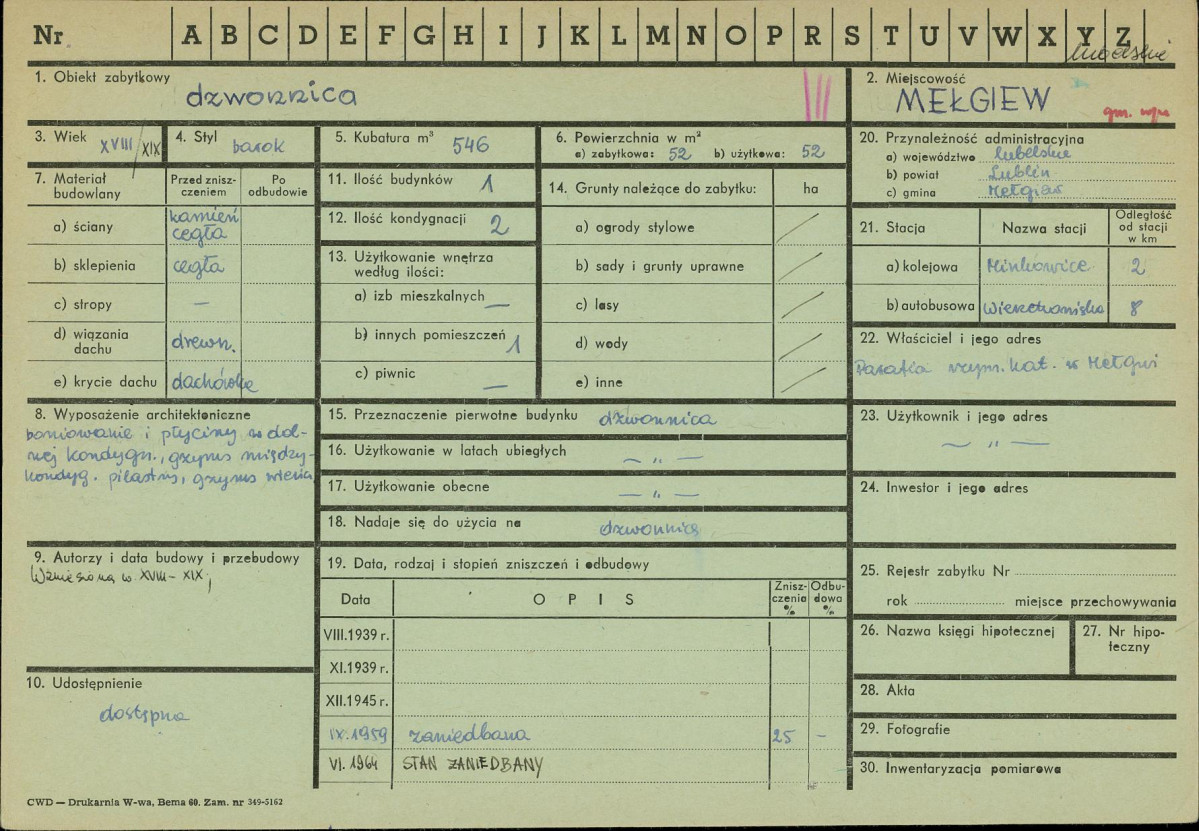 Nr A B C D E F G H I J K L M N O P R S T U V W X Y Z
lubelskie
1. Obiekt zabytkowy
dzwonnica
2. Miejscowość
MEŁGIEW
3. Wiek XVIII/XIX
4. Styl barok
5. Kubatura m³ 546
6. Powierzchnia w m²
a) zabytkowa: 52 b) użytkowa: 52
20. Przynależność administracyjna
a) województwo lubelskie
b) powiat Lublin
c) gmina Mełgiew
7. Materiał budowlany
Przed zniszczeniem
Po odbudowie
a) ściany kamień cegła
b) sklepienia cegła
c) stropy —
d) wiązania dachu drewn.
e) krycie dachu dachówka
11. Ilość budynków 1
12. Ilość kondygnacji 2
13. Użytkowanie wnętrza
według ilości:
a) izb mieszkalnych —
b) innych pomieszczeń 1
c) piwnic —
14. Grunty należące do zabytku: ha
a) ogrody stylowe /
b) sady i grunty uprawne /
c) lasy /
d) wody /
e) inne /
21. Stacja Nazwa stacji Odległość od stacji w km
a) kolejowa Minkowice 2
b) autobusowa 8
22. Właściciel i jego adres
Parafia rzym. kat. w Mełgwi
8. Wyposażenie architektoniczne
boniowanie i płyciny w dol-
nej kondygn., gzyms między-
kondyg. pilastry, gzyms wieńcz
15. Przeznaczenie pierwotne budynku dzwonnica
16. Użytkowanie w latach ubiegłych — „ —
17. Użytkowanie obecne — „ —
18. Nadaje się do użycia na dzwonnicę
23. Użytkownik i jego adres
— „ —
24. Inwestor i jego adres
9. Autorzy i data budowy i przebudowy
Wzniesiona w. XVIII - XIX,
10. Udostępnienie
dostępna
19. Data, rodzaj i stopień zniszczeń i odbudowy
Data OPIS Zniszczenia % Odbudowa %
VIII.1939 r.
XI.1939 r.
XII.1945 r.
IX.1959 zaniedbana 25 -
VI. 1964 STAN ZANIEDBANY
25. Rejestr zabytku Nr
rok miejsce przechowywania
26. Nazwa księgi hipotecznej
27. Nr hipo-
teczny
28. Akta
29. Fotografie
30. Inwentaryzacja pomiarowa
CWD — Drukarnia W-wa, Bema 60. Zam. nr 349-5162